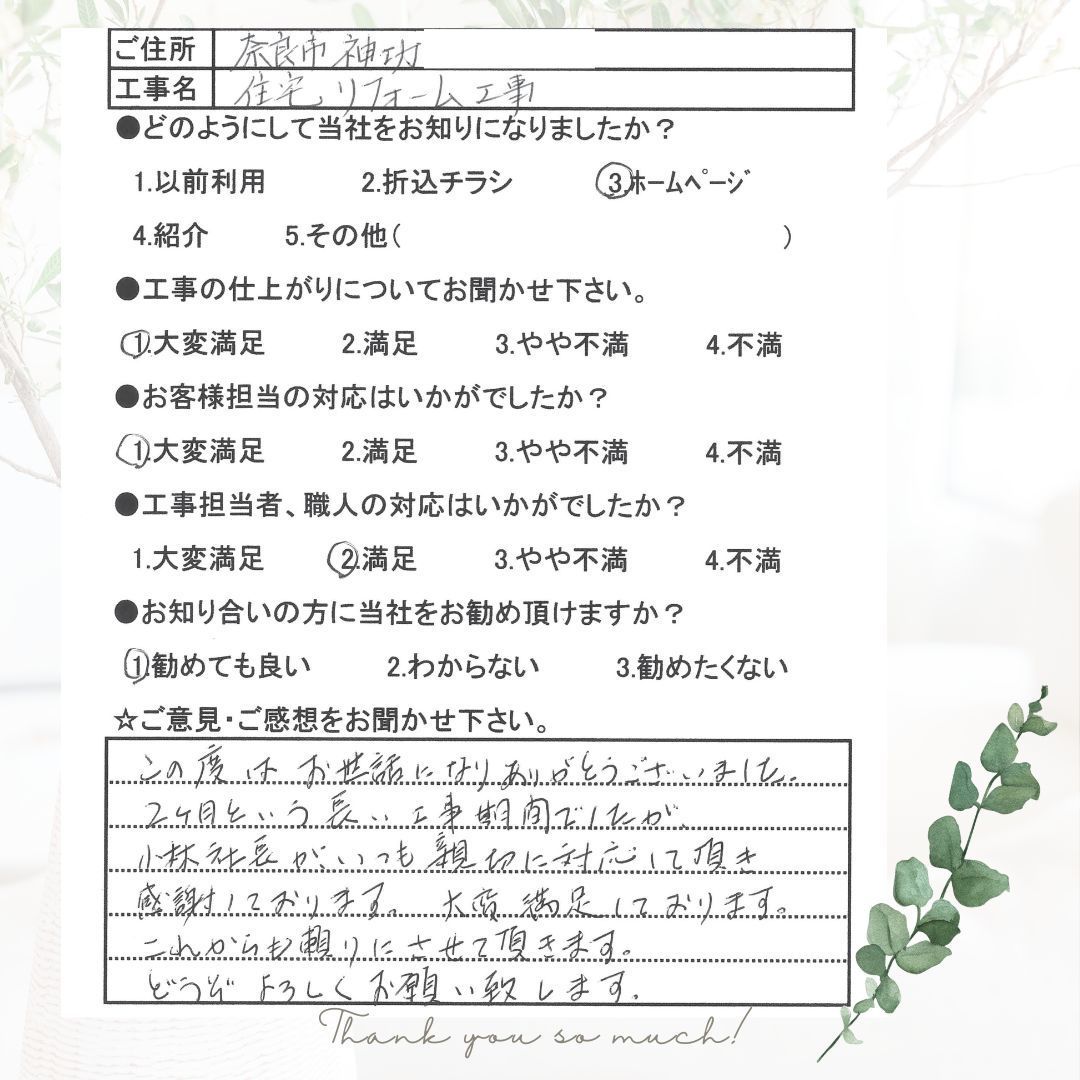 ご住所 奈良市神功
工事名 住宅リフォーム工事
●どのようにして当社をお知りになりましたか？
1.以前利用 2.折込チラシ 3.ホームページ
4.紹介 5.その他( )
●工事の仕上がりについてお聞かせ下さい。
1.大変満足 2.満足 3.やや不満 4.不満
●お客様担当の対応はいかがでしたか？
1.大変満足 2.満足 3.やや不満 4.不満
●工事担当者、職人の対応はいかがでしたか？
1.大変満足 2.満足 3.やや不満 4.不満
●お知り合いの方に当社をお勧め頂けますか？
1.勧めても良い 2.わからない 3.勧めたくない
☆ご意見・ご感想をお聞かせ下さい。
この度はお世話になりありがとうございました。
2ヶ月という長い工事期間でしたが、
小林社長がいつも親切に対応して頂き
感謝しております。 大変満足しております。
これからも頼りにさせて頂きます。
どうぞよろしくお願い致します。
Thank you so much!